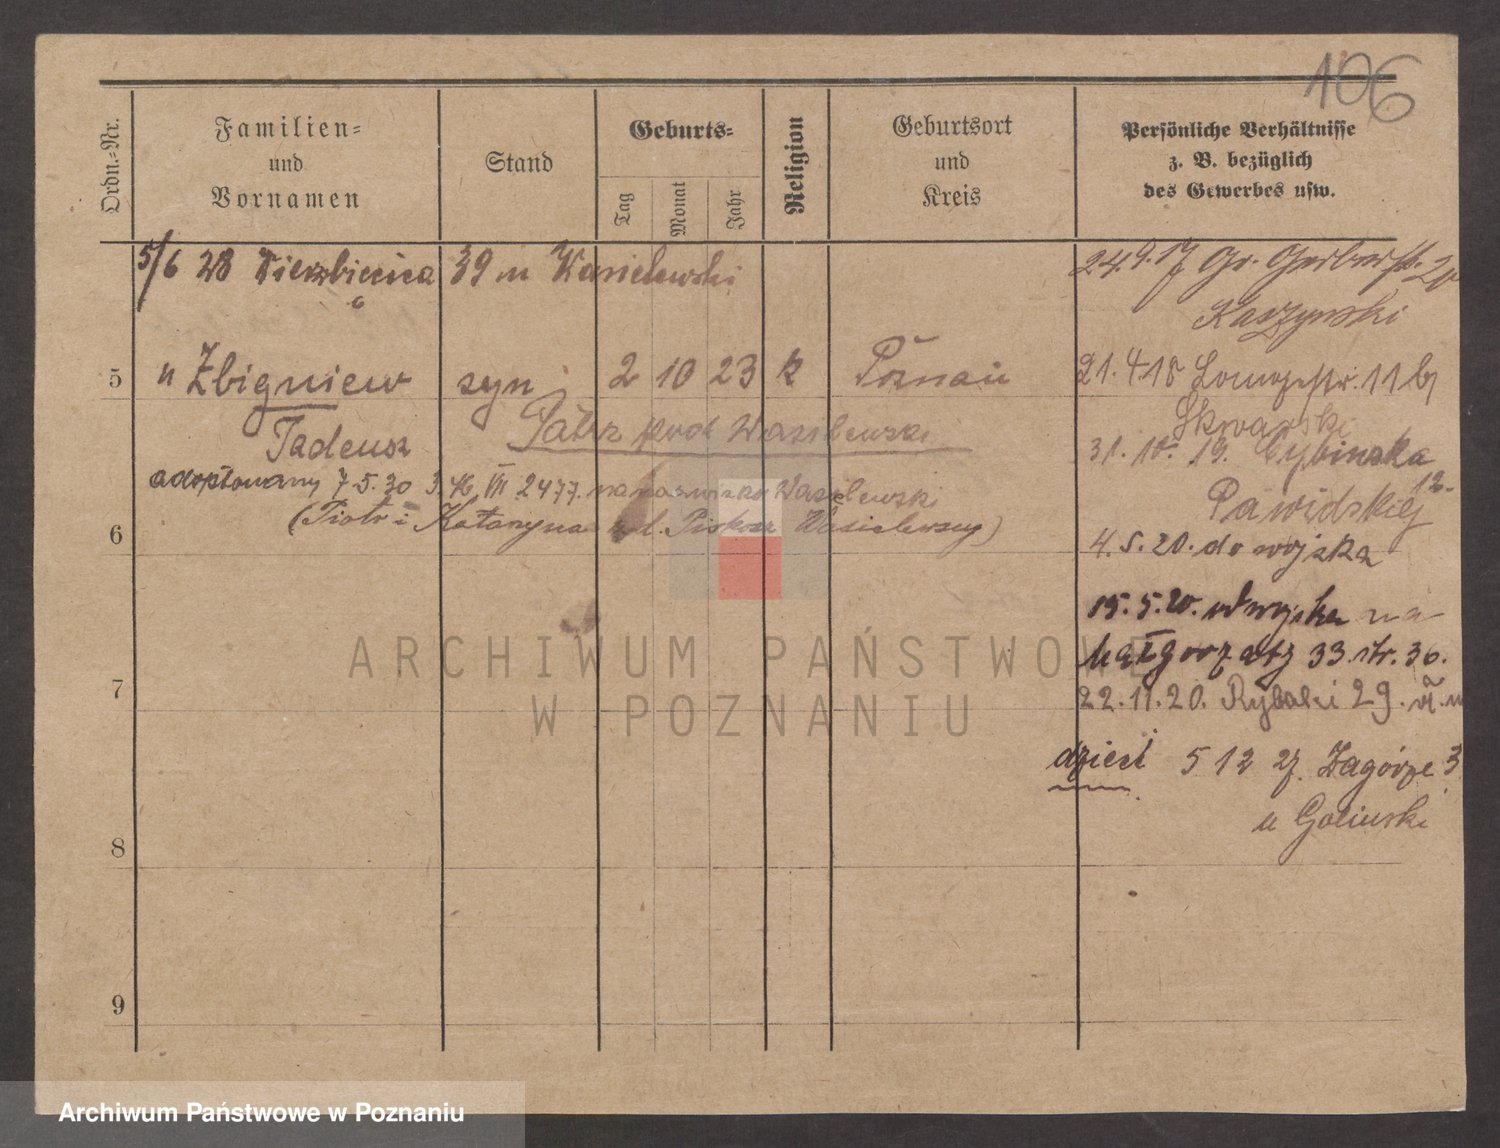 106
Ordn.-Nr.
Familien-
und
Vornamen
Stand
Geburts-
Tag
Monat
Jahr
Religion
Geburtsort
und
Kreis
Persönliche Verhältnisse
z. B. bezüglich
des Gewerbes usw.
5/6 28 Wierzbięcica 39 u Wasielewski
24.9.17 Gr. Gerberstr.
Kaszynski
5 u Zbigniew syn 2 10 23 k Poznań
21.4.18 11
Skwarski
Tadeusz
Patrz pod Wasilewski
31. 10. 19. Cybinska
12.
adoptowany 7.5.30 VII 2477. na nazwisko Wasilewski
(Piotr i Katarzyna
6
4.5.20. do wojska
15.5.20. od wojska na
Małgorzaty 33. str. 36.
7
22.11.20. Rybaki 29.
dzieci 5 12 Zagórze 3
u Goliński
8
9
ARCHIWUM PAŃSTWOWE
W POZNANIU
Archiwum Państwowe w Poznaniu